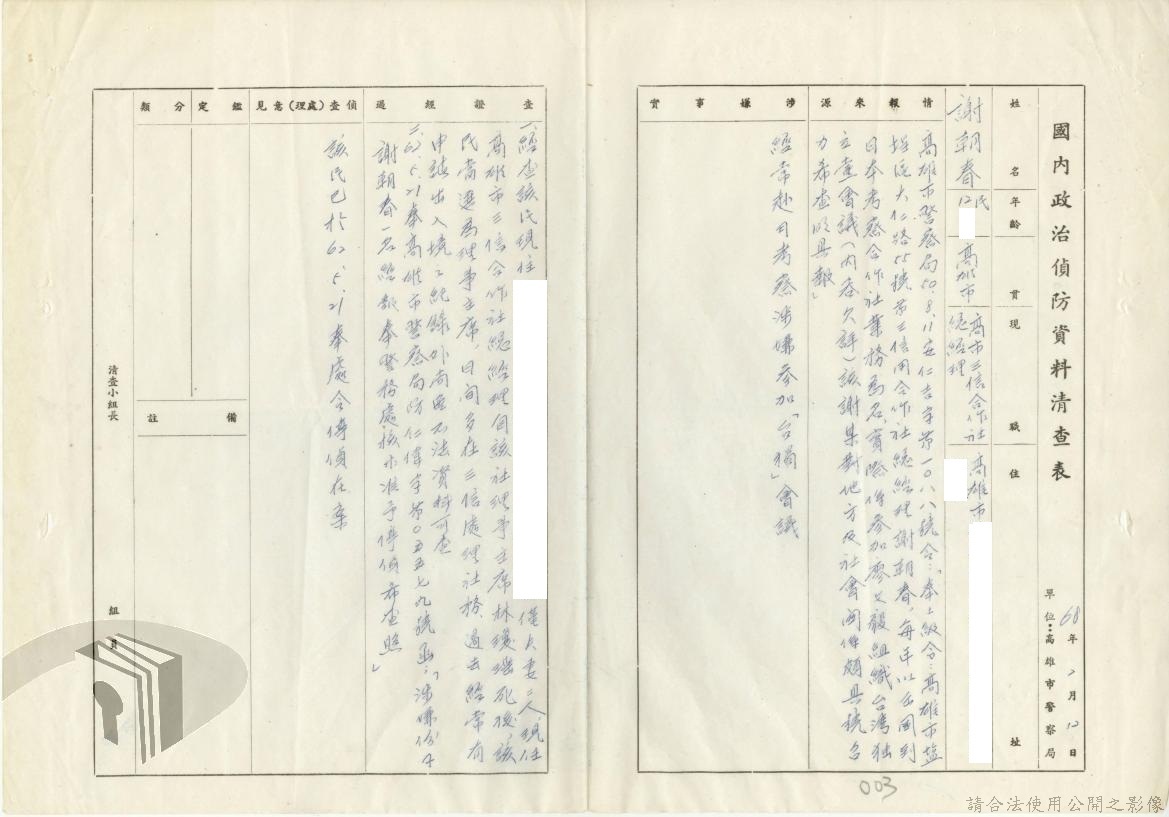 國內政治偵防資料清查表
68年2月12日
單位：高雄市警察局
姓名
年齡
籍貫
現職
住址
謝朝春
民12
高雄市
高市三信合作社
總經理
高雄市
情報來源
高雄市警察局50.8.11安仁吉字第一〇八八號令：「奉上級令：高雄市鹽
埕區大仁路55號第三信用合作社總經理謝朝春，每年以出國到
日本考察合作社業務為名，實際係參加廖文毅組織台灣獨
立黨會議（內容欠詳）該謝某對地方及社會關係頗具號召
力希查明具報」
涉嫌事實
經常赴日考察涉嫌參加「台獨」會議
003
查證經過
一、經查該氏現住
僅夫妻二人，現任
高雄市三信合作社總經理自該社理事主席林瓊瑤死後，該
民當選為理事主席，日間多在三信處理社務，過去經常有
申請出入境之紀錄外尚無不法資料可查
二、62.5.21奉高雄市警察局防仁偉字第0五五七九號函：「涉嫌份子
謝朝春一名經報奉警務處核示准予停偵希查照」
偵查(處理)意見
該民已於62.5.21奉處令停偵在案
鑑定
分類
備註
清查小組長
組員
請合法使用公開之影像